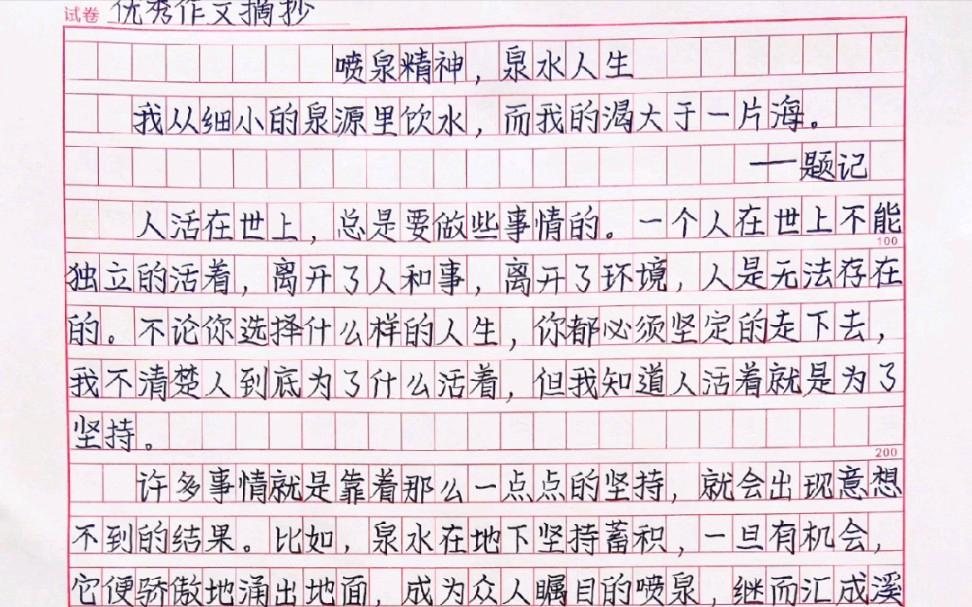 试卷 优秀作文摘抄
喷泉精神，泉水人生
我从细小的泉源里饮水，而我的渴大于一片海。
——题记
人活在世上，总是要做些事情的。一个人在世上不能
100
独立的活着，离开了人和事，离开了环境，人是无法存在
的。不论你选择什么样的人生，你都必须坚定的走下去，
我不清楚人到底为了什么活着，但我知道人活着就是为了
坚持。
200
许多事情就是靠着那么一点点的坚持，就会出现意想
不到的结果。比如，泉水在地下坚持蓄积，一旦有机会，
它便骄傲地涌出地面，成为众人瞩目的喷泉，继而汇成溪